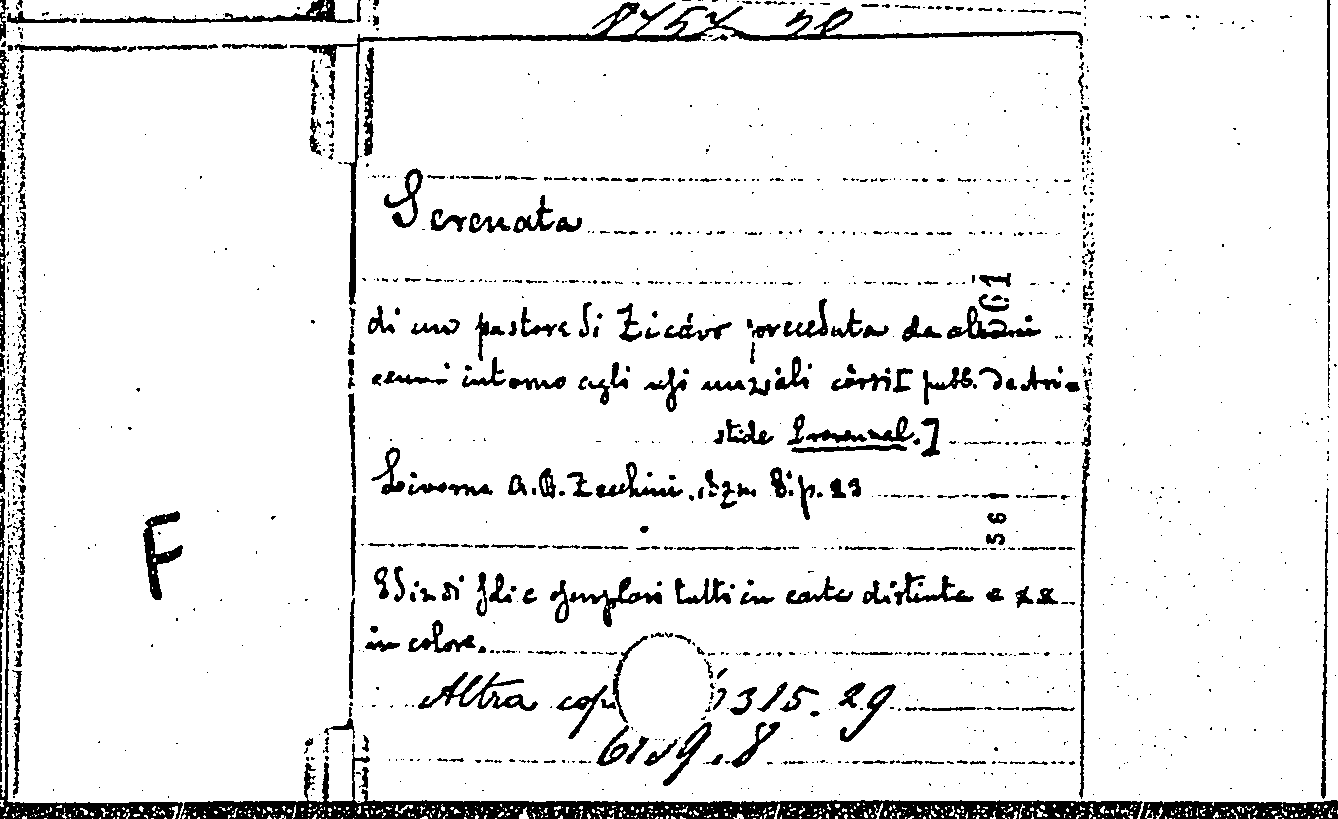 8757 20
Serenata
di un pastore di Zicávo preceduta da alcuni
cenni intorno agli usi nuziali córsi [pubb. da Ari=
stide Provenzal.]
Livorno A.B. Zecchini. 8º. p. 23
Ediz. di esemplari tutti in carta distinta e
in colore.
Altra cop 315.29
8
F
C1
56